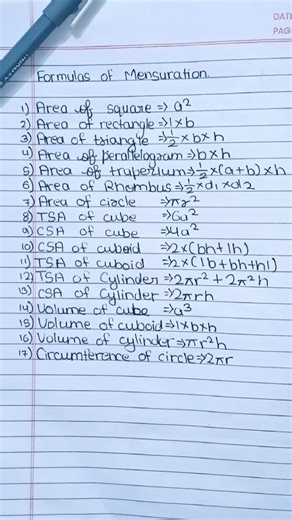 DATE
PAG
Formulas of Mensuration.
1) Area of square => a²
2) Area of rectangle => l×b
3) Area of triangle => 1/2 × b×h
4) Area of perallelogram => b×h
5) Area of trapezium => 1/2 ×(a+b)×h
6) Area of Rhombus => 1/2 ×d1 ×d2
7) Area of circle => πr²
8) TSA of cube => 6a²
9) CSA of cube => 4a²
10) CSA of cuboid => 2×(bh+lh)
11) TSA of cuboid => 2×(lb+bh+hl)
12) TSA of Cylinder => 2πr² + 2π²h
13) CSA of Cylinder => 2πrh
14) Volume of cube => a³
15) Volume of cuboid => l×b×h
16) Volume of cylinder => πr²h
17) Circumference of circle => 2πr